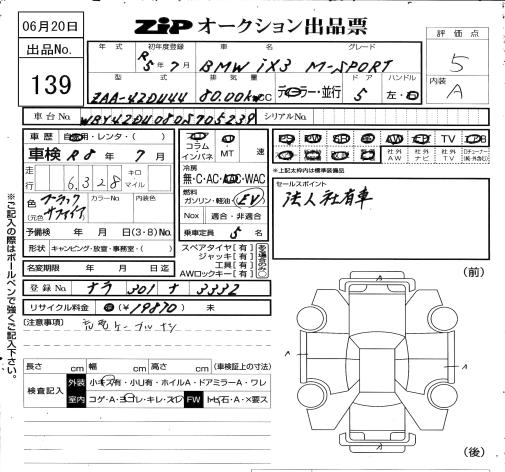 06月20日
ZIP オークション出品票
出品No.
139
年式 初年度登録 車名 グレード
R5年7月 BMW iX3 M-SPORT
型式 排気量 ドア ハンドル
ZAA-42DU44 80.00kw cc ディーラー・並行 5 左・右
評価点
5
内装
A
車台No. WBY42DU0805705239 シリアルNo.
車歴 自家用・レンタ・( )
車検 R8年7月
走行 6,328 キロ マイル
色 ブラック サファイア
(元色
カラーNo. 内装色
予備検 年 月 日(3・8)No.
形状 キャンピング・放宣・事務室・( )
名変期限 年 月 日迄
コラム
インパネ
MT 速
冷房
無・C・AC・AAC・WAC
燃料
ガソリン・軽油・EV
Nox 適合・非適合
乗車定員 5 名
スペアタイヤ【有】
ジャッキ【有】
工具【有】
AWロックキー【有】
TV
社外AW 社外ナビ 社外TV
*上記太枠内は標準装備品
セールスポイント
法人社有車
登録No. ナラ 301 ナ 3332
リサイクル料金 済(¥19870) 未
(注意事項) 充電ケーブルナシ
長さ cm 幅 cm 高さ cm (車検証上の寸法)
検査記入 外装 小キズ有・小U有・ホイルA・ドアミラーA・ワレ
室内 コゲ・A・ヨゴレ・キレ・スレ FW トビ石・A・X要ス
(前)
A
A
(後)
※ご記入の際はボールペンで強くご記入下さい。